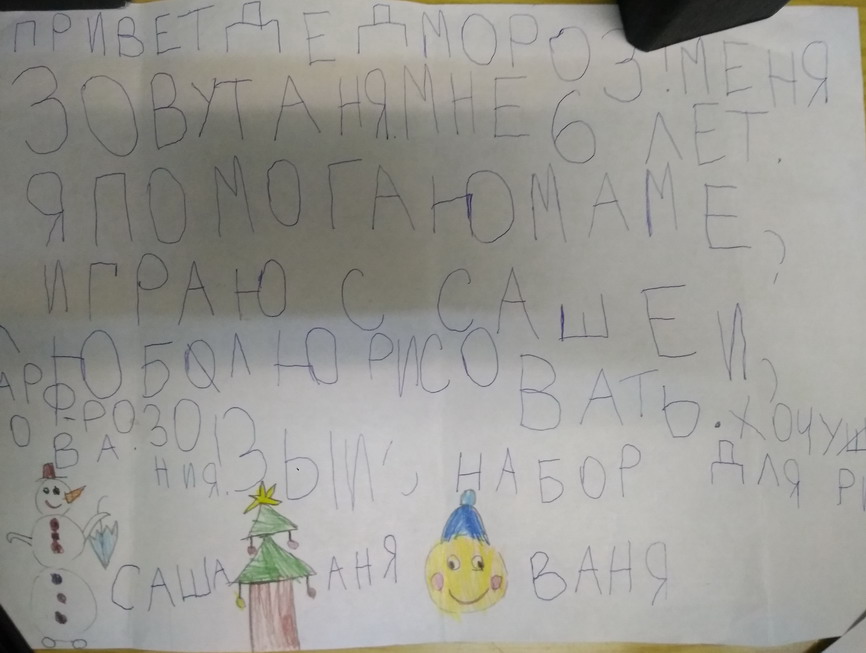 ПРИВЕТ ДЕД МОРОЗ! МЕНЯ
ЗОВУТ АНЯ. МНЕ 6 ЛЕТ.
Я ПОМОГАЮ МАМЕ,
ИГРАЮ С САШЕЙ,
ЛЮБОЛЮ РИСО
ВАТЬ. ХОЧУ Ш
АРФ РОЗО
ЗЫЙ, НАБОР ДЛЯ РИ
О ВА
НИЯ.
САША АНЯ ВАНЯ